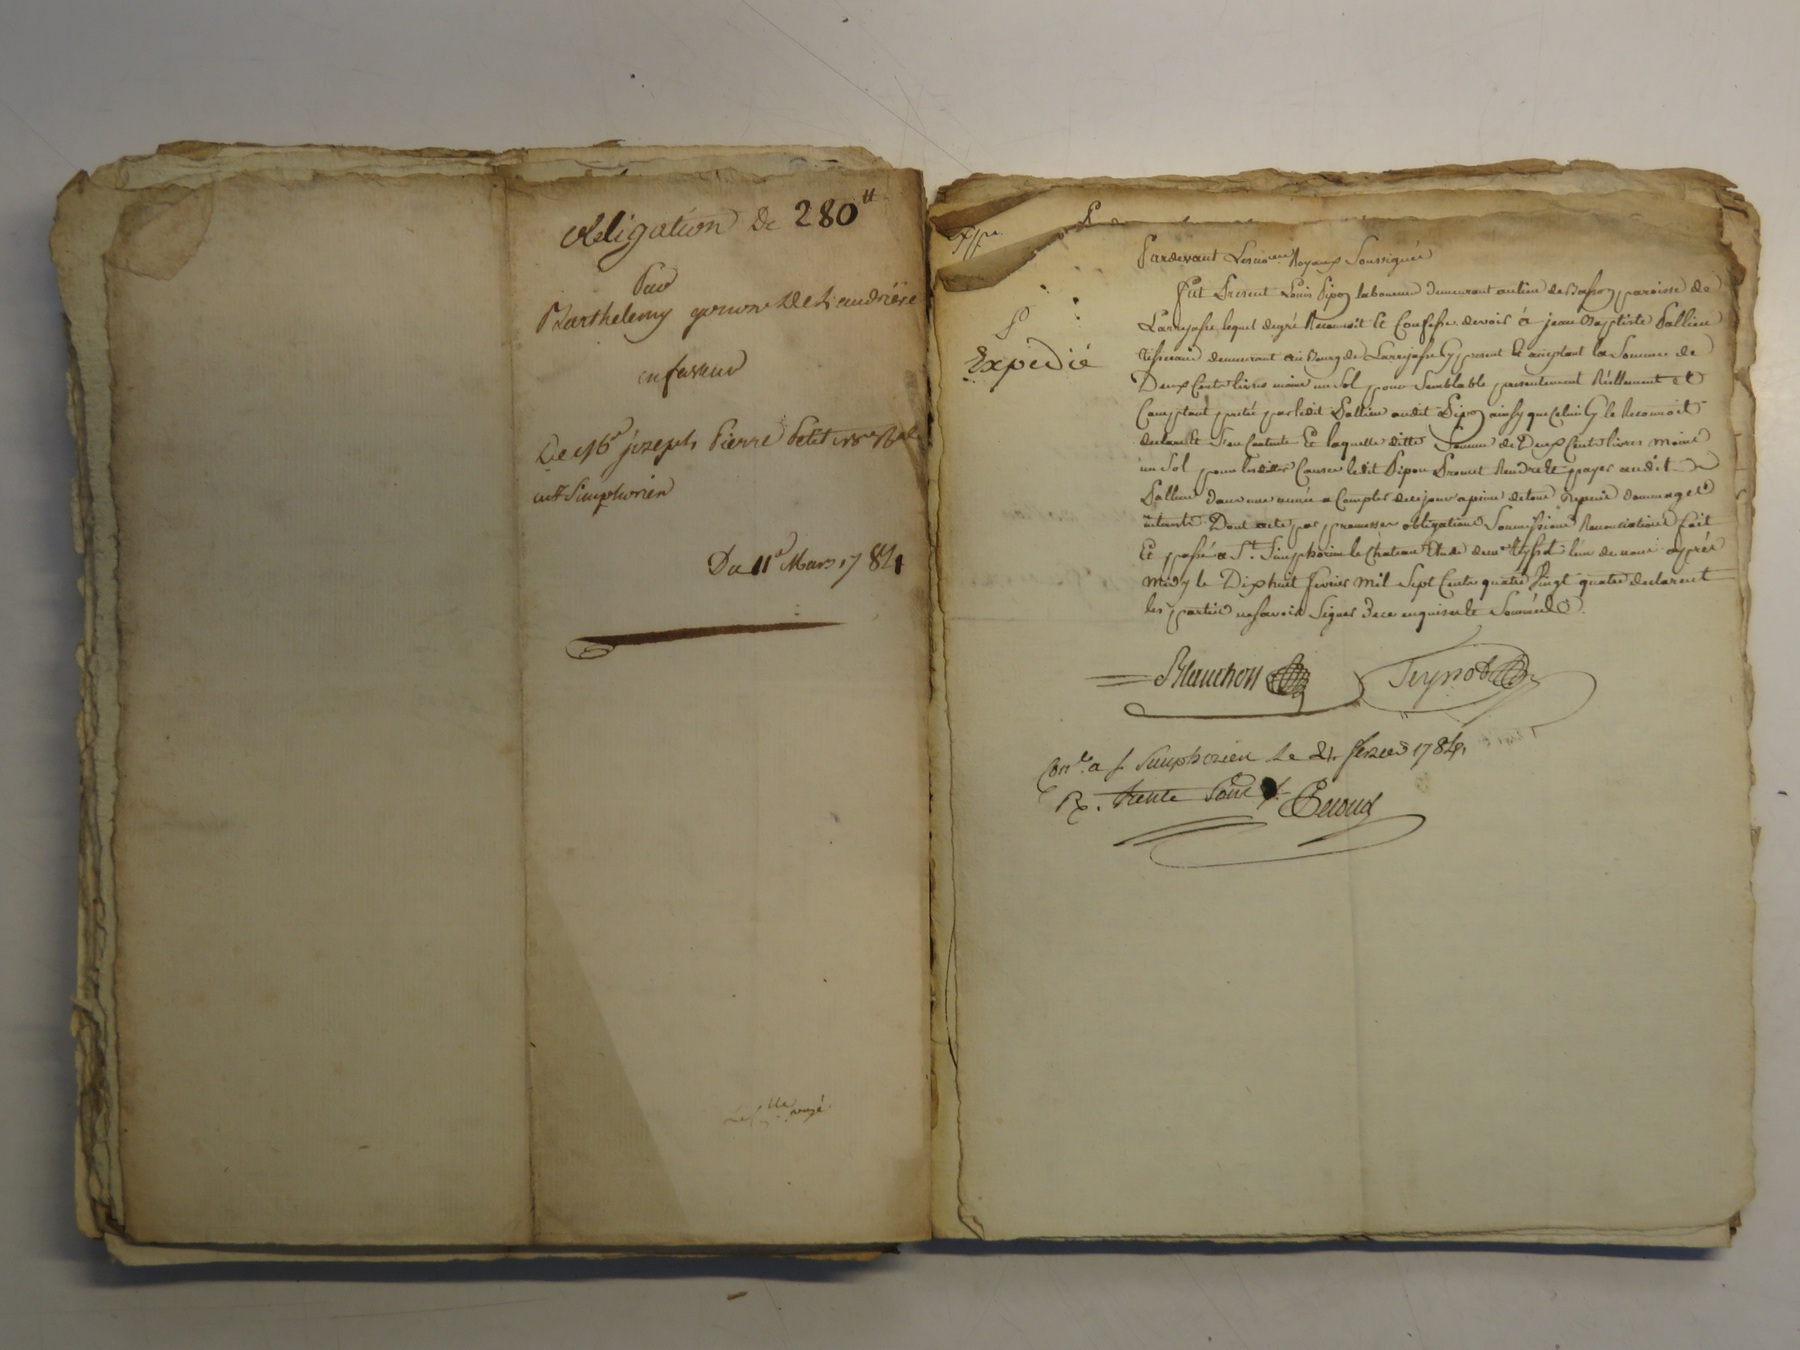 obligation De 280 tt
Par
Barthelemy
en faveur
De Mr joseph Pierre Petit nre Ral
a St Simphorien
Du 11e Mars 1784
Expedié
Pardevant Les nores Royaux Soussignés
Fut Present Louis Pipon laboureur demeurant au lieu de paroisse de
Larajasse, lequel degré Reconnoit Et Confesse devoir à jean Baptiste Pallieu
tisserand demeurant au Bourg de Larajasse Cy present Et acceptant la Somme de
Deux Cents livres moins un Sol pour Semblable presentement Réellement et
Comptant pretée par ledit Pallieu audit Pipon ainsy que Celui Cy le Reconnoit
declare Et S'en Contente Et laquelle ditte Somme de Deux Cents livres moins
un Sol pour lesdittes Causes ledit Pipon Promet Rendre Et payer audit
Pallieu dans une année a Compter de ce jour a peine de tous depens dommages
interets Dont acte par promesses obligations Soumissions Renonciations fait
Et passé a St. Simphorien le Chateau Etude de Me l'un de nous après
midy le Dixhuit fevrier mil Sept Cents quatre Vingt quatre declarent
les parties ne Savoir Signer de ce enquises Et Sommées
Blanchon
Conlé a St Simphorien Le 21 fevrier 1784
R. trente Sols